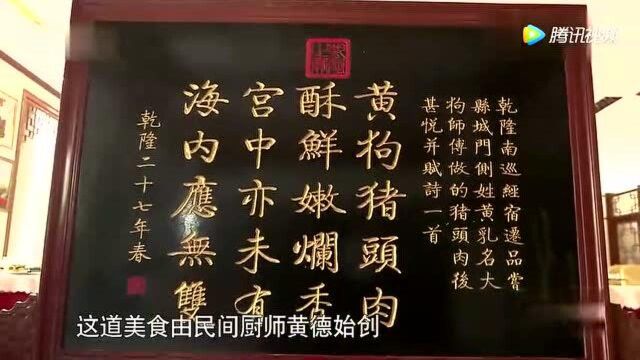 腾讯视频
乾隆南巡經宿遷品嘗
縣城門側姓黄乳名大
狗師傅做的猪頭肉後
甚悦并賦詩一首
黄狗猪頭肉
酥鮮嫩爛香
宫中亦未有
海内應無雙
乾隆二十七年春
这道美食由民间厨师黄德始创